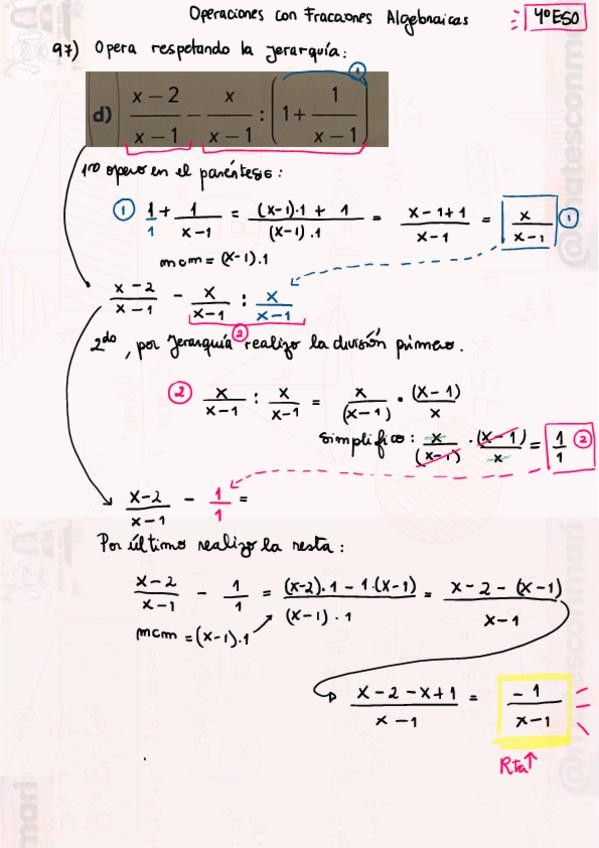 Operaciones con Fracciones Algebraicas 4º ESO
97) Opera respetando la jerarquía:
d) (x-2)/(x-1) - x/(x-1) : (1 + 1/(x-1)) ①
1ro opero en el paréntesis:
① 1/1 + 1/(x-1) = ((x-1).1 + 1)/((x-1).1) = (x-1+1)/(x-1) = x/(x-1) ①
mcm = (x-1).1
(x-2)/(x-1) - x/(x-1) : x/(x-1)
②
2do, por Jerarquía realizo la división primero.
② x/(x-1) : x/(x-1) = x/(x-1) · (x-1)/x
Simplifico: x/(x-1) · (x-1)/x = 1/1 ②
(x-2)/(x-1) - 1/1 =
Por último realizo la resta:
(x-2)/(x-1) - 1/1 = ((x-2).1 - 1.(x-1))/((x-1).1) = (x-2-(x-1))/(x-1)
mcm = (x-1).1
(x-2-x+1)/(x-1) = -1/(x-1)
Rta↑
@matesconmari